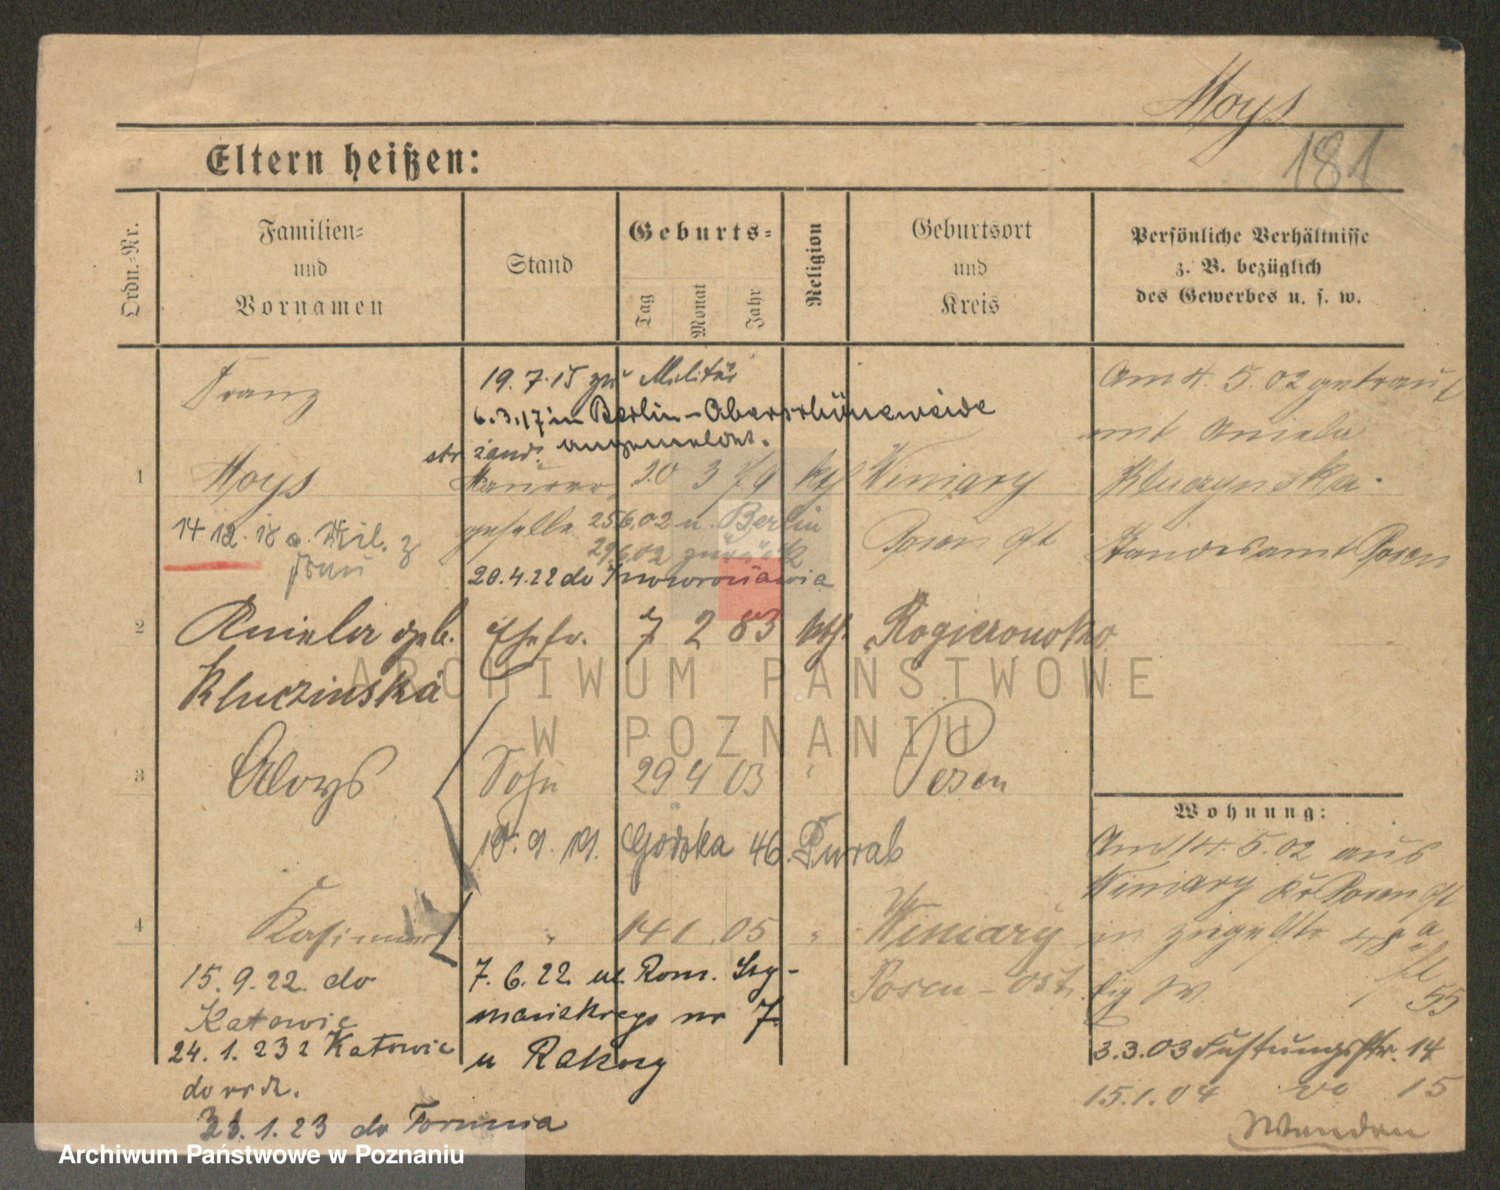 Moys
181
Eltern heißen:
Ordn.-Nr.
Familien-
und
Vornamen
Stand
Geburts-
Tag
Monat
Jahr
Religion
Geburtsort
und
Kreis
Persönliche Verhältnisse
z. B. bezüglich
des Gewerbes u. s. w.
Franz
19.7.15 zu Militär
6.3.17 in Berlin-Oberschöneweide
angemeldet.
Am 4.5.02 getraut
mit Aniela
Kluczynska.
Standesamt Posen
1
Moys
Maurer
20 3 79 kth Winiary
14 12. 18 a. Mil. z
Frau
geselle 25.6.02 n. Berlin
29.6.02 zurück
Posen
20.4.22 do Inowrocławia
2
Aniela geb.
Kluczinska
Ehefr.
7 2 83 kth. Rogierowko
3
Aloys
Sohn
29 4 03 " Posen
19. 46.
4
Kasimir
" 14 1 05 " Winiary
Posen-Ost.
15.9.22. do
Katowic
24.1.23 z Katowic
31.1.23 do Torunia
7.6.22 ul. Rom. Szy-
mańskiego nr 7.
u Rakocy
Wohnung:
Am 14.5.02 aus
Winiary Kr Posen
in
55
3.3.03 14
15.1.04 15
ARCHIWUM PAŃSTWOWE
W POZNANIU
Archiwum Państwowe w Poznaniu